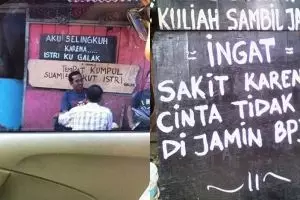 AKU SELINGKUH
KARENA.....
ISTRI KU GALAK
TEMPAT KUMPUL
SUAMI TAKUT ISTRI
KULIAH SAMBIL
= INGAT =
SAKIT KAREN
CINTA TIDAK
DI JAMIN BP